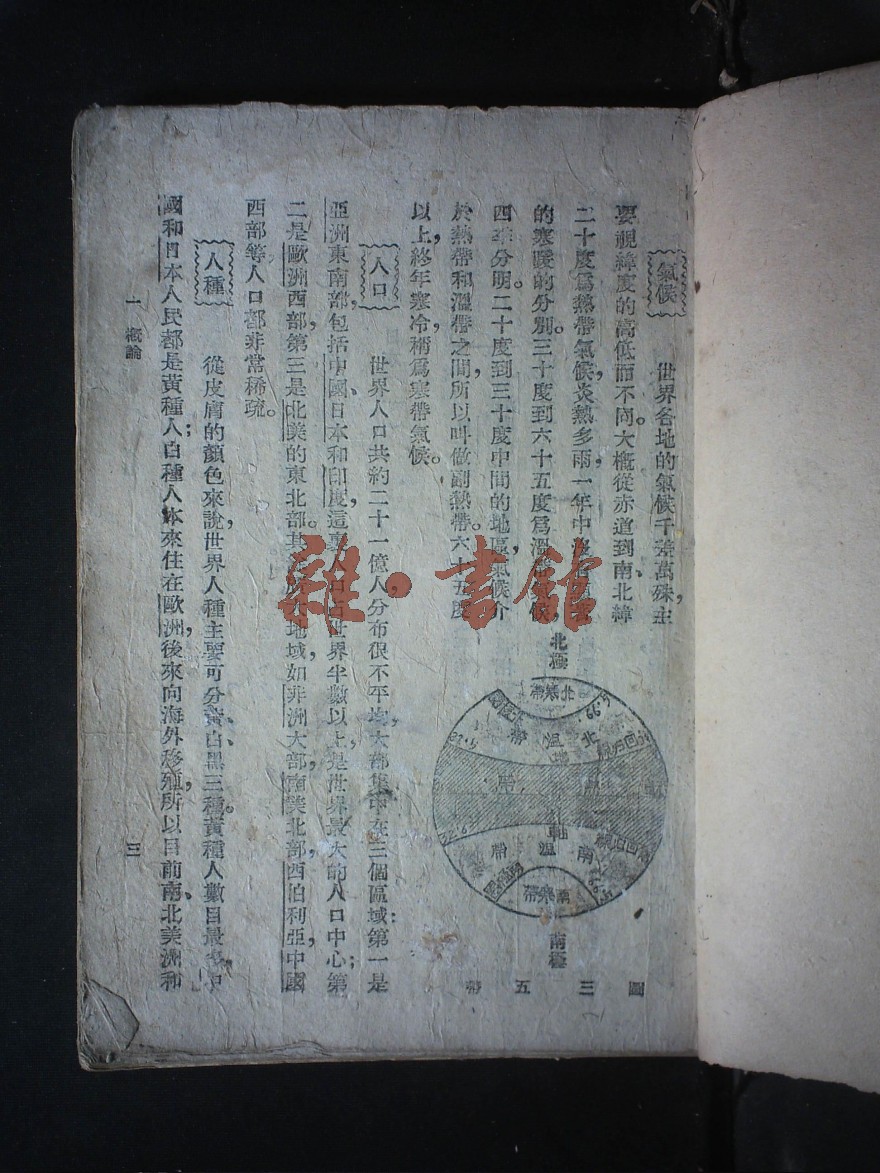 氣候
世界各地的氣候千差萬殊，主
要視緯度的高低而不同。大概從赤道到南、北緯
二十度爲熱帶氣候，炎熱多雨，一年中
的寒暖的分別。三十度到六十五度爲溫帶氣候，
四季分明。二十度到三十度中間的地區，氣候介
於熱帶和溫帶之間，所以叫做副熱帶。六十五度
以上，終年寒冷，稱爲寒帶氣候。
北極
北寒帶
北溫帶
熱帶
南溫帶
南寒帶
南極
圖三 五帶
人口
世界人口共約二十一億人，分布很不平均，大部集中在三個區域：第一是
亞洲東南部，包括中國、日本和印度，這裏人口占世界半數以上，是世界最大的人口中心；第
二是歐洲西部，第三是北美的東北部。其餘廣大地域，如非洲大部，南美北部，西伯利亞，中國
西部等，人口都非常稀疏。
人種
從皮膚的顏色來說，世界人種主要可分黃、白、黑三種。黃種人數目最多，中
國和日本人民都是黃種人；白種人本來住在歐洲，後來向海外移殖，所以目前南、北美洲和
一 概論
三
雜·書館